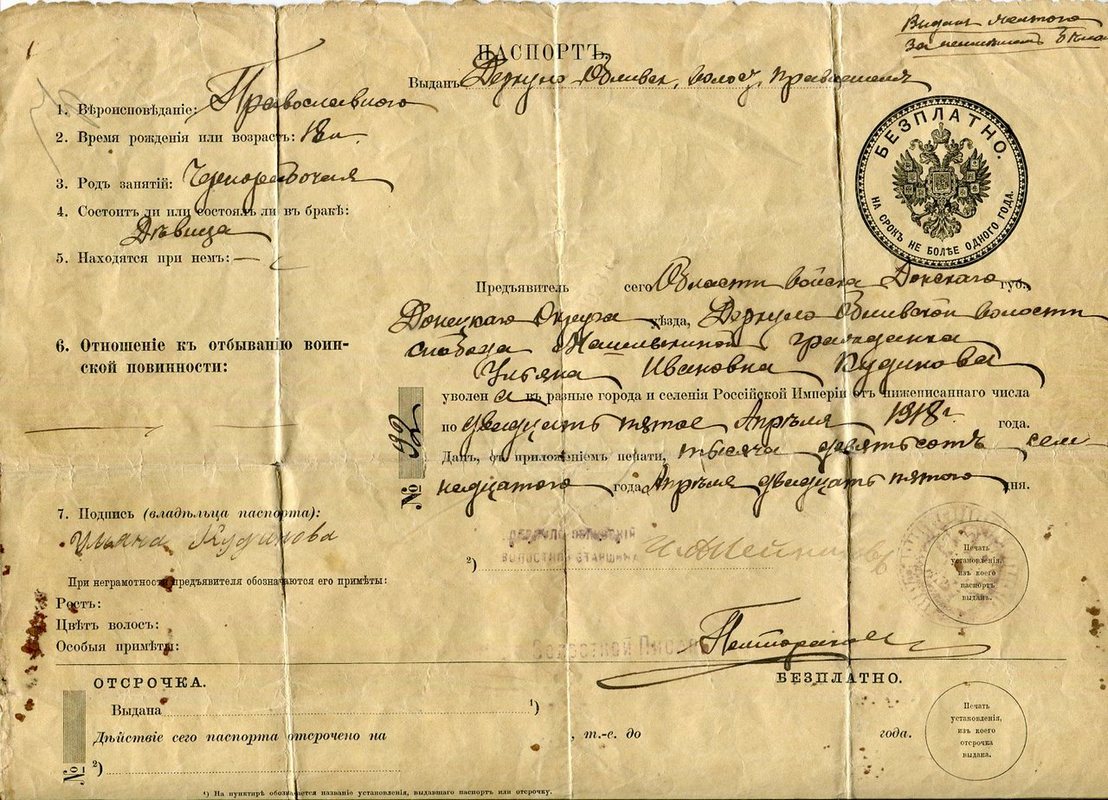 ПАСПОРТЪ.
Выданъ Деркуло Обливск. волост. Правленіемъ
БЕЗПЛАТНО.
НА СРОКЪ НЕ БОЛѢЕ ОДНОГО ГОДА.
1. Вѣроисповѣданіе: Православного
2. Время рожденія или возрастъ: 18 л.
3. Родъ занятій: Чернорабочая
4. Состоитъ ли или состоялъ ли въ бракѣ:
Дѣвица
5. Находятся при немъ: —
6. Отношеніе къ отбыванію воин-
ской повинности:
Предъявитель сего Области войска Донскаго губ.
Донецкаго Округа уѣзда, Деркуло Обливской волости
слобода гражданка
Ульяна Ивановна Кудинова
уволен а въ разные города и селенія Российской Имперіи отъ нижеписаннаго числа
по двадцать пятое Апрѣля 1918 г. года.
Данъ, съ приложеніемъ печати, тысяча девятьсотъ сем
надцатого года Апрѣля двадцать пятого дня.
№ 92
7. Подпись (владѣльца паспорта):
Ульяна Кудинова
При неграмотности предъявителя обозначаются его примѣты:
Ростъ:
Цвѣтъ волосъ:
Особыя примѣты:
2)
Печать
установленія,
изъ коего
паспортъ
выданъ.
ОТСРОЧКА.
БЕЗПЛАТНО.
Выдана 1)
Дѣйствіе сего паспорта отсрочено на , т.-е. до года.
№ 2)
Печать
установленія,
изъ коего
отсрочка
выдана.
¹) На пунктирѣ обозначается названіе установленія, выдавшаго паспортъ или отсрочку.